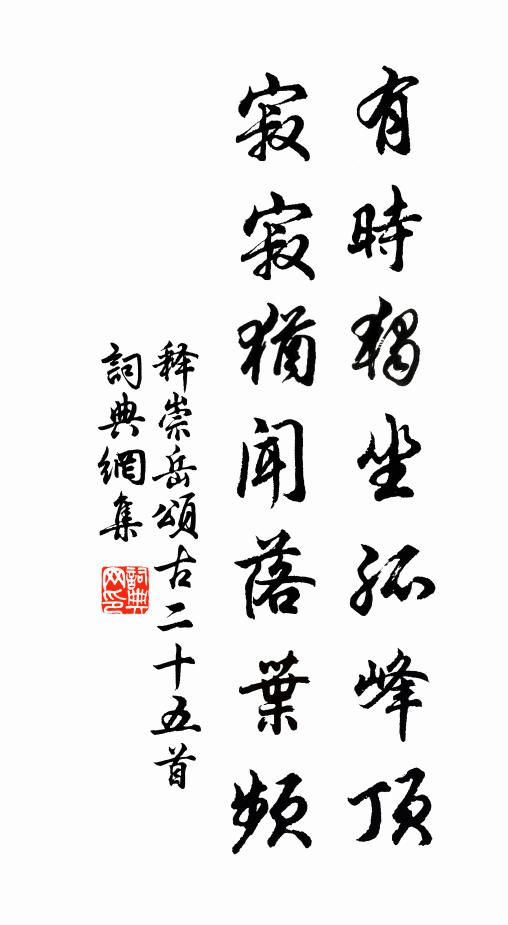 有時獨坐孤峰頂
寂寂猶聞落葉頻
释崇岳頌古二十五首
詞典網集
詞典
网印